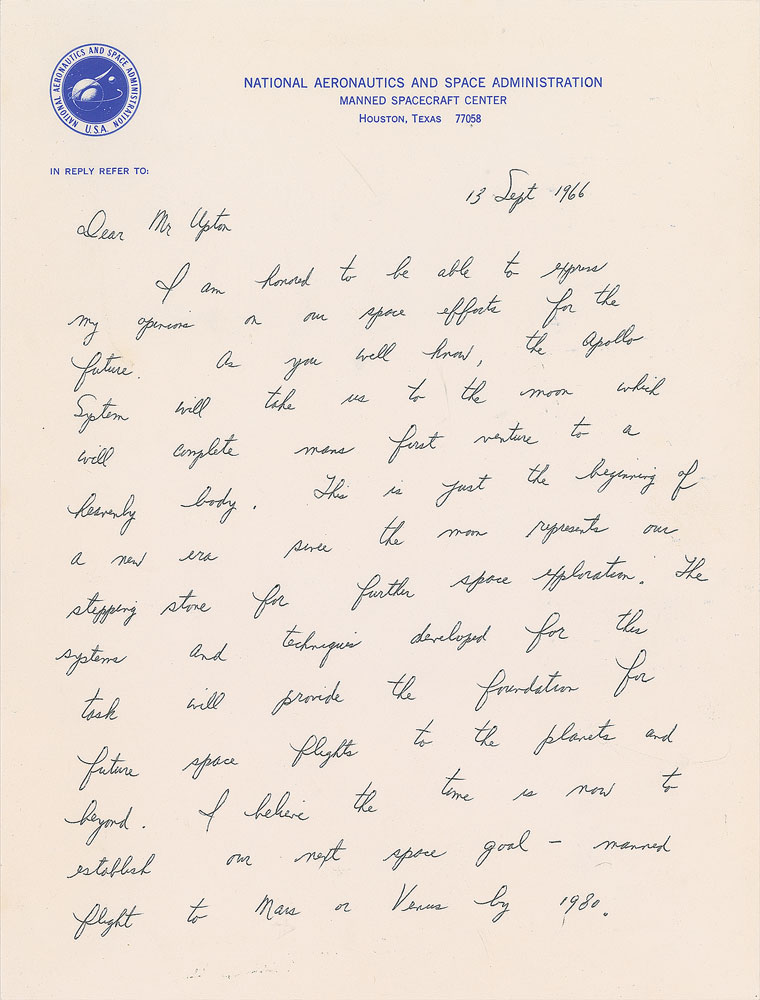 NATIONAL AERONAUTICS AND SPACE ADMINISTRATION
U.S.A.
NATIONAL AERONAUTICS AND SPACE ADMINISTRATION
MANNED SPACECRAFT CENTER
HOUSTON, TEXAS 77058
IN REPLY REFER TO:
13 Sept 1966
Dear Mr Upton
I am honored to be able to express
my opinions on our space efforts for the
future. As you well know, the Apollo
System will take us to the moon which
will complete mans first venture to a
heavenly body. This is just the beginning of
a new era since the moon represents our
stepping stone for further space exploration. The
systems and techniques developed for this
task will provide the foundation for
future space flights to the planets and
beyond. I believe the time is now to
establish our next space goal – manned
flight to Mars or Venus by 1980.